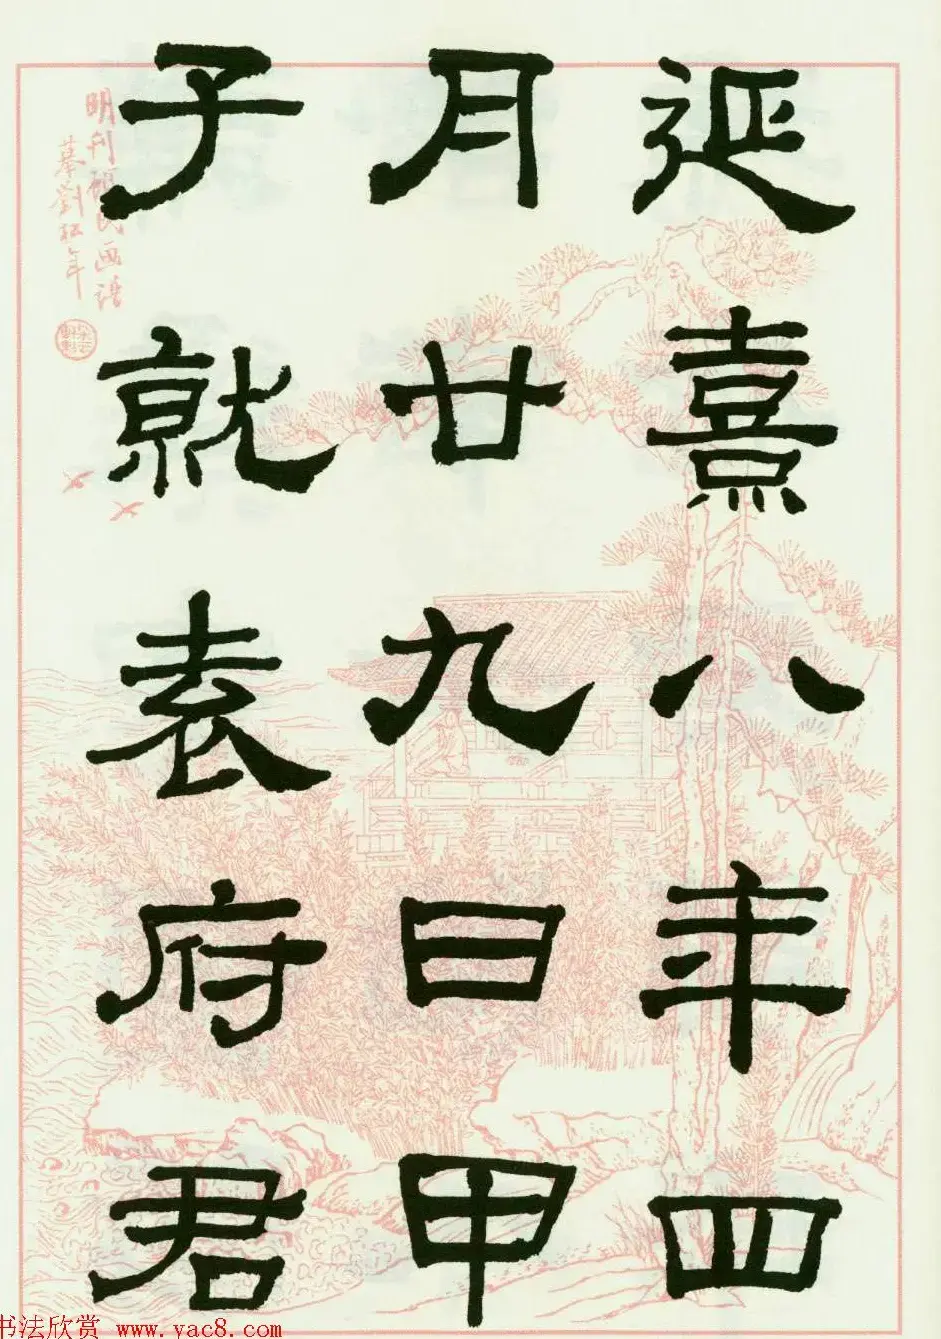 延熹八年四
月廿九日甲
子就袁府君
明刊 画谱
摹刘 年
书法欣赏 www.yac8.com